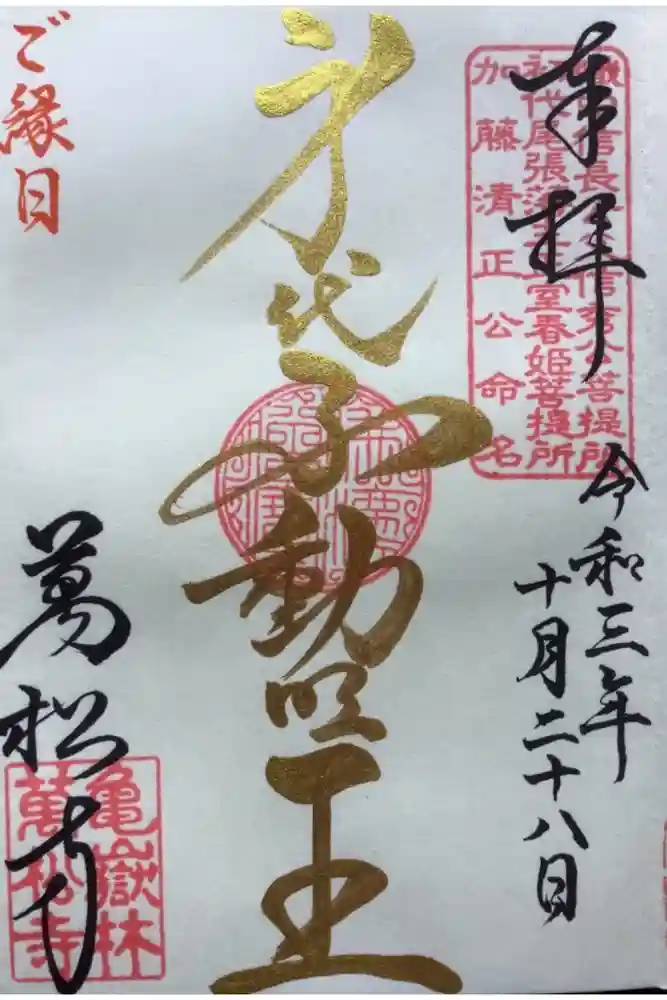 奉拝
織田信長公父信秀公菩提所
初代尾張藩主正室春姫菩提所
加藤清正公命名
令和三年
十月二十八日
身代不動明王
ご縁日
萬松寺
亀嶽林
萬松寺